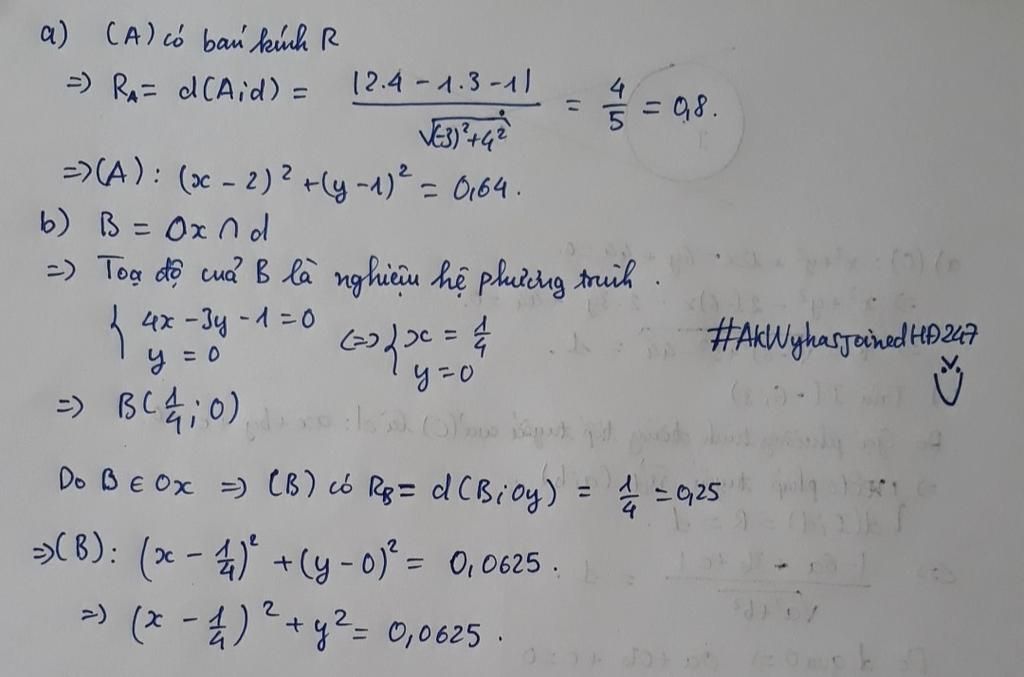 a) (A) có bań kính R
=> R_A = d(A;d) = |2.4 - 1.3 - 1| / √(-3)²+4² = 4/5 = 0,8.
=> (A) : (x - 2)² + (y - 1)² = 0,64.
b) B = Ox ∩ d
=> Toạ độ cuả B là nghiệm hệ phương trình.
{ 4x - 3y - 1 = 0 <=> { x = 1/4
y = 0 y = 0
#AkWyhasjoinedHĐ247
=> B(1/4; 0)
Do B ∈ Ox => (B) có R_B = d(B;Oy) = 1/4 = 0,25
=> (B) : (x - 1/4)² + (y - 0)² = 0,0625.
=> (x - 1/4)² + y² = 0,0625.